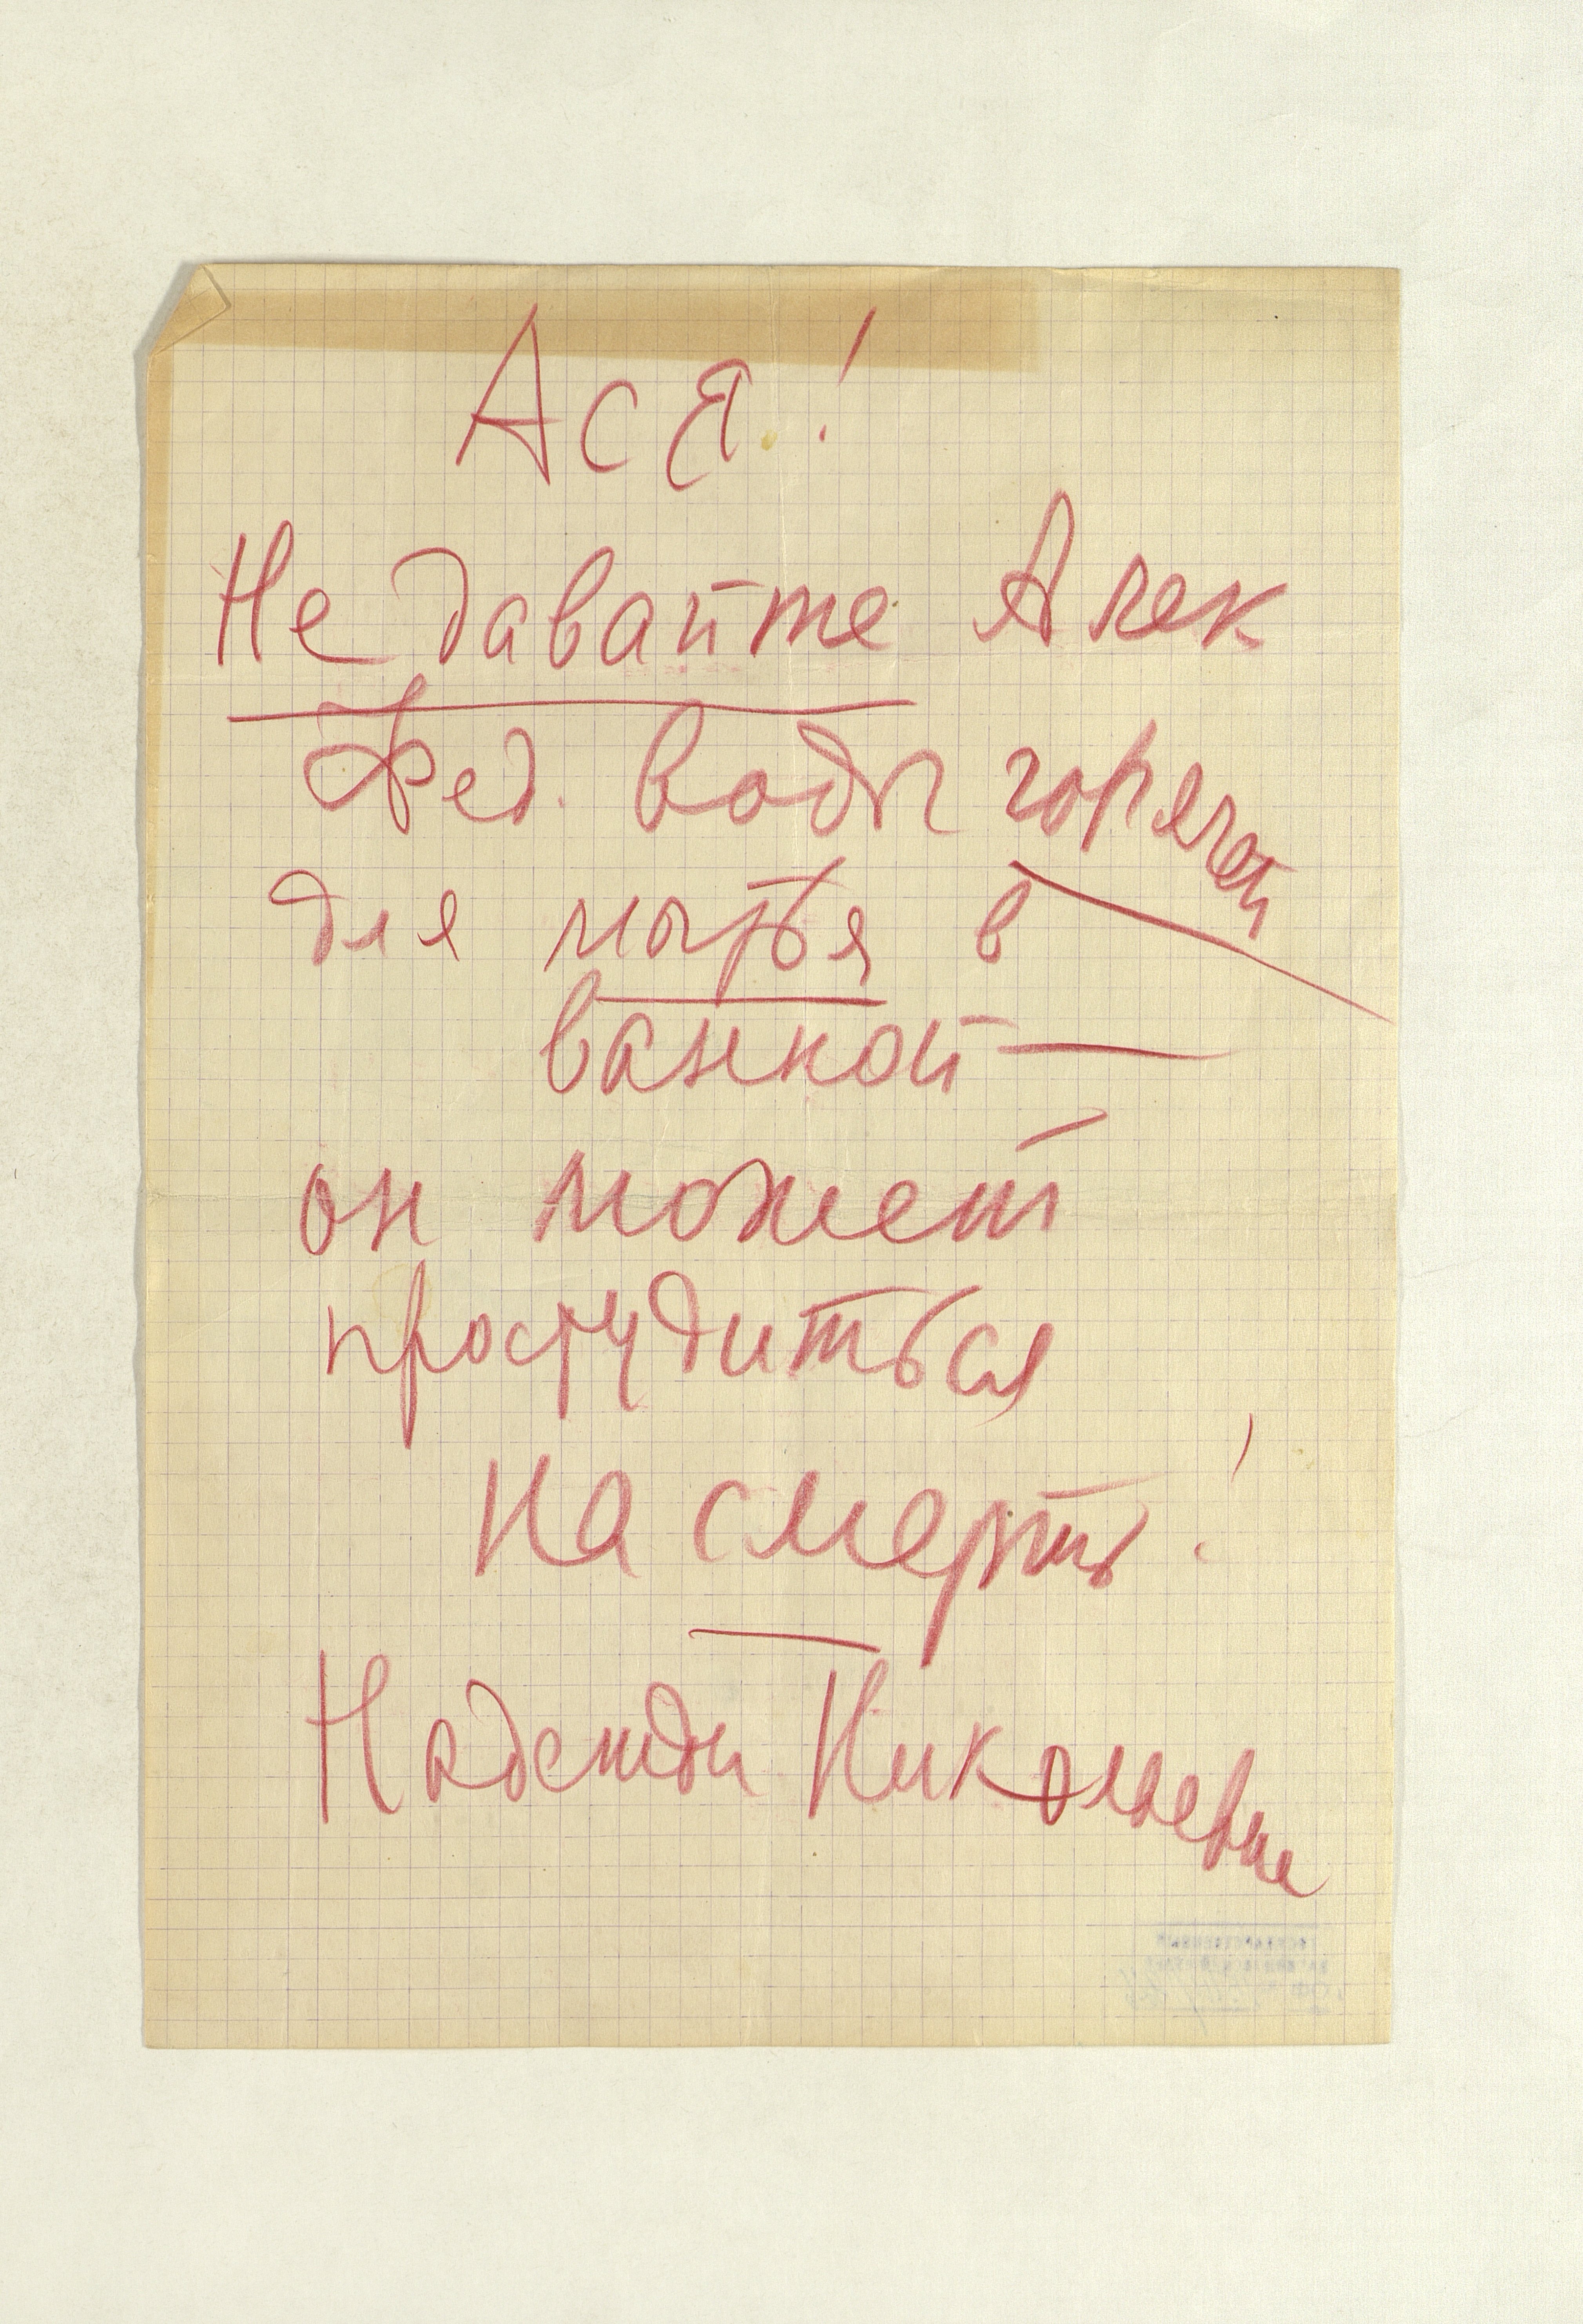 Ася!
Не давайте Алек
Фед. воды горячей
для мытья в
ванной —
он может
простудиться
на смерть!
Надежда Николаевна